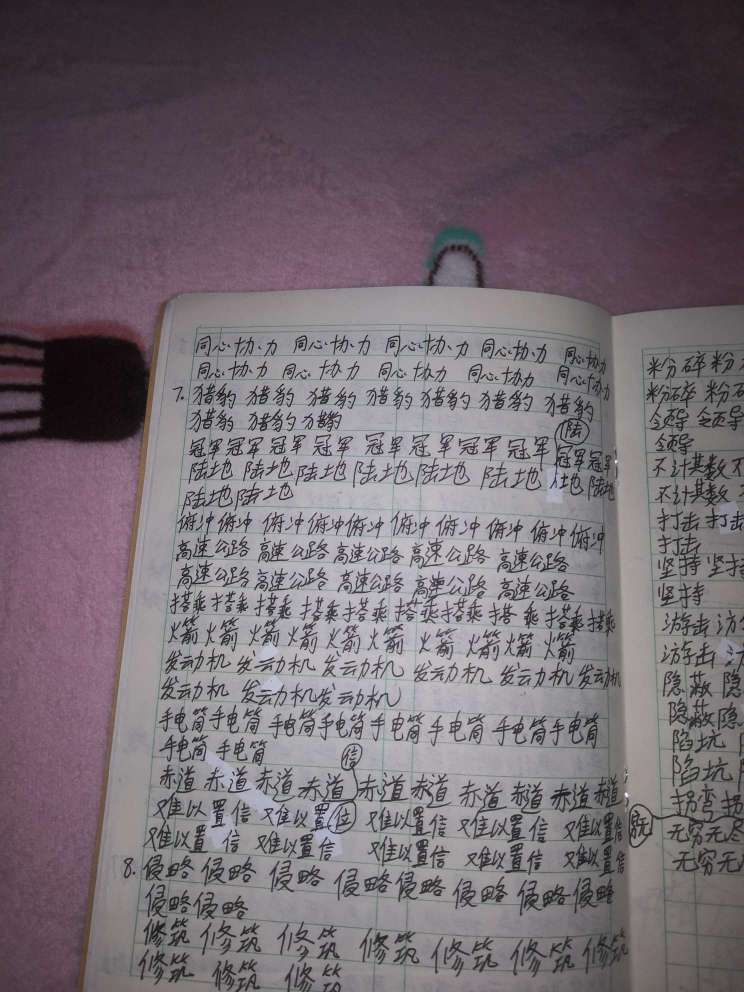 同心协力 同心协力 同心协力 同心协力 同心协力
同心协力 同心协力 同心协力 同心协力 同心协力
7. 猎豹 猎豹 猎豹 猎豹 猎豹 猎豹 猎豹
猎豹 猎豹 猎豹
陆
冠军 冠军 冠军 冠军 冠军 冠军 冠军 冠军 冠军 冠军
陆地 陆地 陆地 陆地 陆地 陆地 地 陆地
陆地 陆地
俯冲 俯冲 俯冲 俯冲 俯冲 俯冲 俯冲 俯冲 俯冲 俯冲
高速公路 高速公路 高速公路 高速公路 高速公路
高速公路 高速公路 高速公路 高速公路 高速公路
搭乘 搭乘 搭乘 搭乘 搭乘 搭乘 搭乘 搭乘 搭乘 搭乘
火箭 火箭 火箭 火箭 火箭 火箭 火箭 火箭 火箭 火箭
发动机 发动机 发动机 发动机 发动机 发动机
发动机 发动机 发动机
手电筒 手电筒 手电筒 手电筒 手电筒 手电筒 手电筒 手电筒
手电筒 手电筒
信
赤道 赤道 赤道 赤道 赤道 赤道 赤道 赤道 赤道 赤道
难以置信 难以置信 难以置信 难以置信 难以置信
难以置信 难以置信 难以置信 难以置信 难以置信
8. 侵略 侵略 侵略 侵略 侵略 侵略 侵略 侵略
侵略 侵略
修筑 修筑 修筑 修筑 修筑 修筑 修筑
修筑 修筑 修筑
粉碎 粉
粉碎 粉碎
领导 领导
领导
不计其数 不
不计其数 不
打击 打击
打击
坚持 坚持
坚持
游击 游
游击
隐蔽 隐
隐蔽 隐
陷坑
陷坑
拐弯 拐
无穷无尽
无穷无